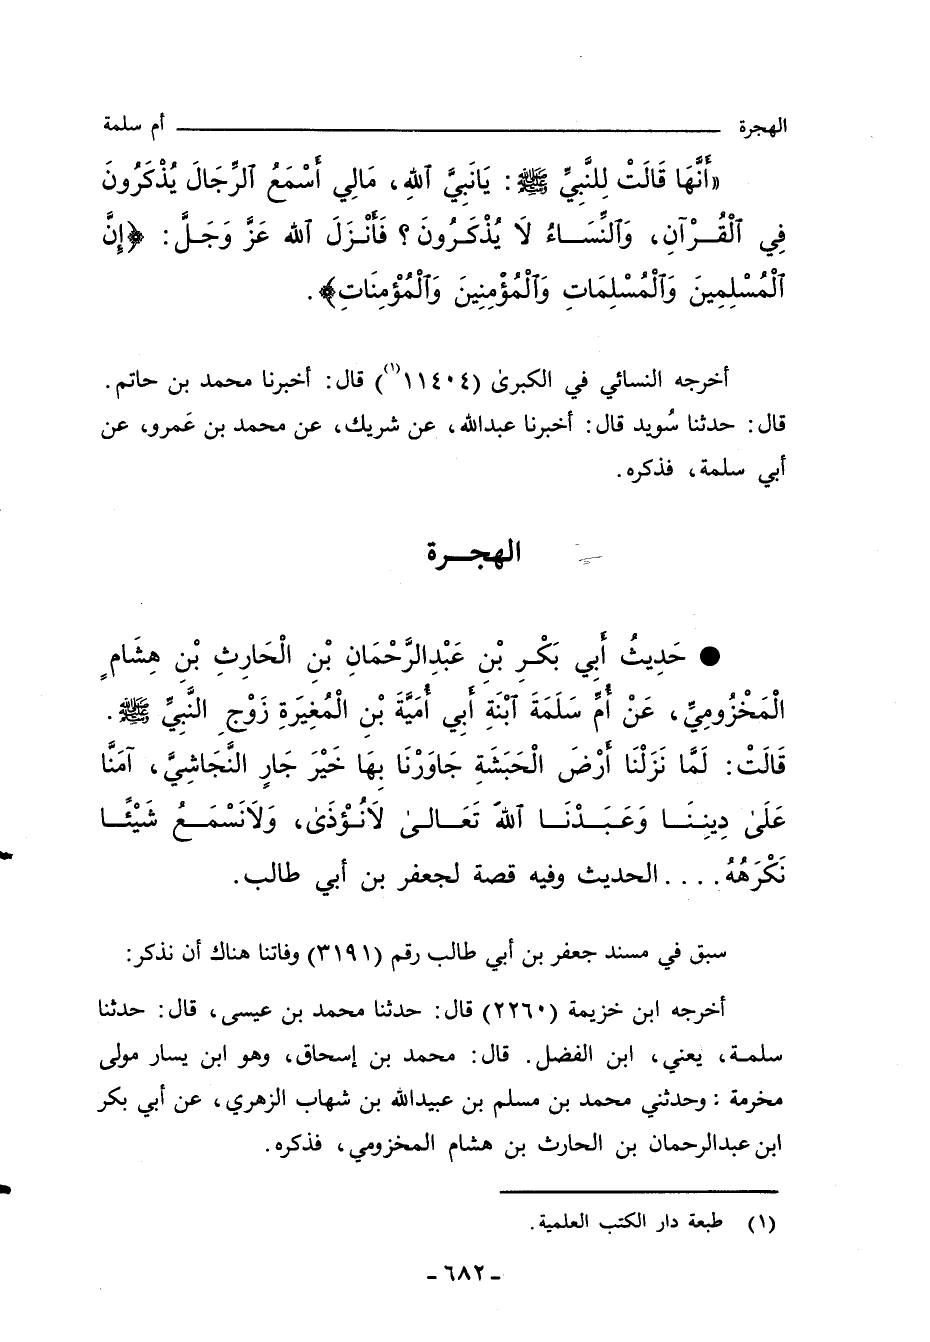 الهجرة ــــــــــ أم سلمة
«أَنَّهَا قَالَتْ لِلنَّبِيِّ ﷺ: يَانَبِيَّ ٱللهِ، مَالِي أَسْمَعُ ٱلرِّجَالَ يُذْكَرُونَ
فِي ٱلْقُرْآنِ، وَٱلنِّسَاءُ لَا يُذْكَرُونَ؟ فَأَنْزَلَ ٱلله عَزَّ وَجَلَّ: ﴿إِنَّ
ٱلْمُسْلِمِينَ وَٱلْمُسْلِمَاتِ وَٱلْمُؤْمِنِينَ وَٱلْمُؤْمِنَاتِ﴾.
أخرجه النسائي في الكبرىٰ (١١٤٠٤(١)) قال: أخبرنا محمد بن حاتم.
قال: حدثنا سُويد قال: أخبرنا عبدالله، عن شريك، عن محمد بن عَمرو، عن
أبي سلمة، فذكره.
الهجرة
● حَدِيثُ أَبِي بَكْرِ بْنِ عَبْدِالرَّحْمَانِ بْنِ الْحَارِثِ بْنِ هِشَامٍ
الْمَخْزُومِيِّ، عَنْ أُمِّ سَلَمَةَ ٱبْنَةِ أَبِي أُمَيَّةَ بْنِ الْمُغِيرَةِ زَوْجِ النَّبِيِّ ﷺ.
قَالَتْ: لَمَّا نَزَلْنَا أَرْضَ الْحَبَشَةِ جَاوَرْنَا بِهَا خَيْرَ جَارٍ النَّجَاشِيَّ، آمَنَّا
عَلَىٰ دِينِنَا وَعَبَدْنَا ٱللهَ تَعَالىٰ لَانُؤْذَىٰ، وَلَانَسْمَعُ شَيْئًا
نَكْرَهُهُ.... الحديث وفيه قصة لجعفر بن أبي طالب.
سبق في مسند جعفر بن أبي طالب رقم (٣١٩١) وفاتنا هناك أن نذكر:
أخرجه ابن خزيمة (٢٢٦٠) قال: حدثنا محمد بن عيسى، قال: حدثنا
سلمة، يعني، ابن الفضل. قال: محمد بن إسحاق، وهو ابن يسار مولى
مخرمة: وحدثني محمد بن مسلم بن عبيدالله بن شهاب الزهري، عن أبي بكر
ابن عبدالرحمان بن الحارث بن هشام المخزومي، فذكره.
(١) طبعة دار الكتب العلمية.
- ٦٨٢ -